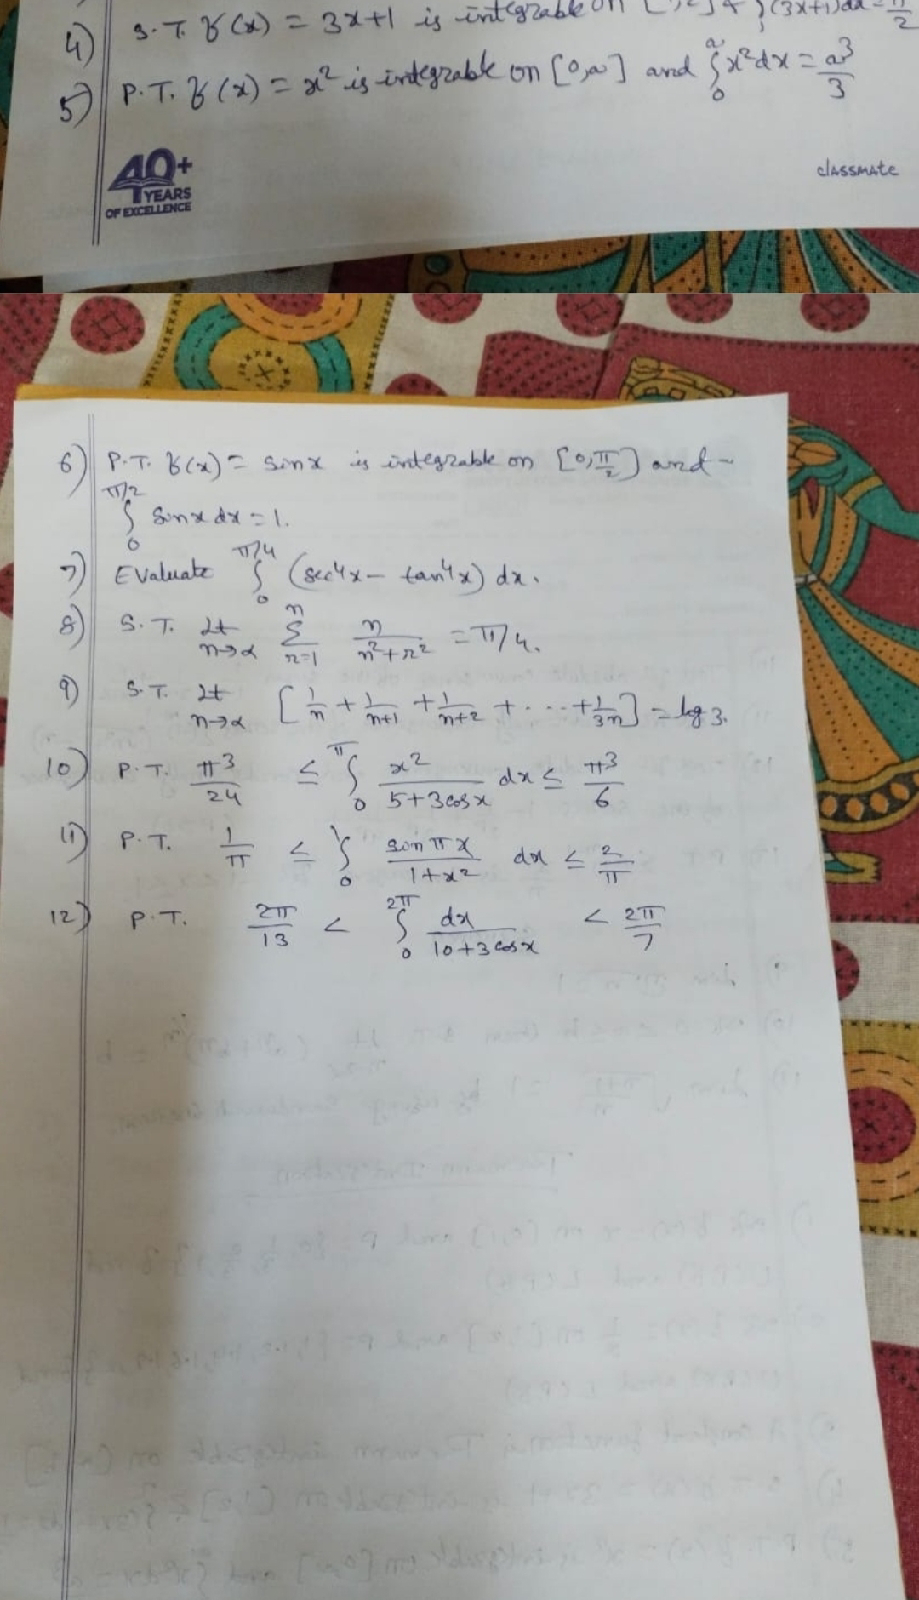 4) S.T. f(x) = 3x+1 is integrable on [1,2] & ∫(3x+1)dx = 11/2
5) P.T. f(x) = x² is integrable on [0,a] and ∫₀ᵃ x²dx = a³/3
40+
YEARS
OF EXCELLENCE
classmate
6) P.T. f(x) = sinx is integrable on [0,π/2] and -
∫₀^(π/2) sinx dx = 1.
7) Evaluate ∫₀^(π/4) (sec⁴x - tan⁴x) dx.
8) S.T. Lt n→∞ Σ_(r=1)^n n/(n²+r²) = π/4.
9) S.T. Lt n→∞ [1/n + 1/(n+1) + 1/(n+2) + ... + 1/3n] = log 3.
10) P.T. π³/24 ≤ ∫₀^π x²/(5+3cosx) dx ≤ π³/6
11) P.T. 1/π ≤ ∫₀¹ sinπx/(1+x²) dx ≤ 2/π
12) P.T. 2π/13 < ∫₀^(2π) dx/(10+3cosx) < 2π/7